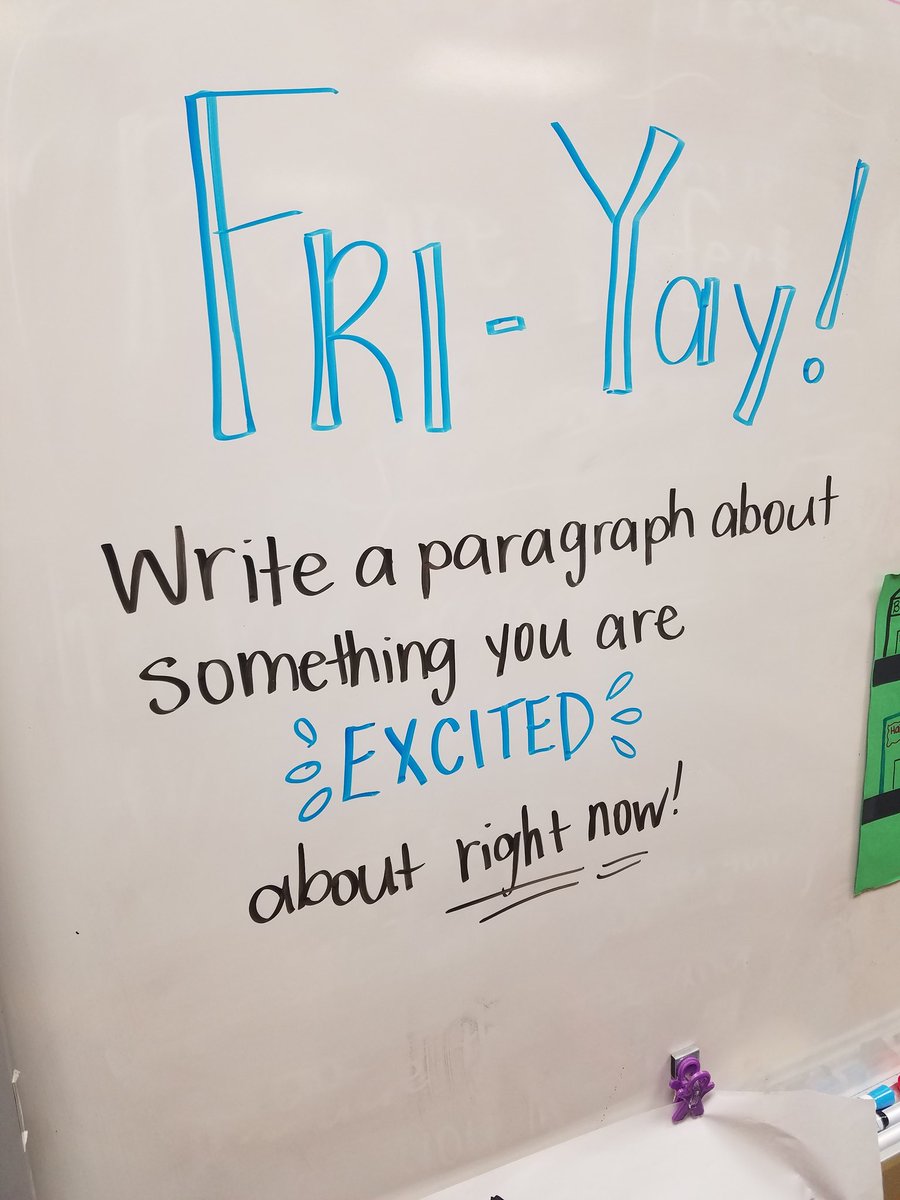 Fri-Yay!
Write a paragraph about
something you are
EXCITED
about right now!